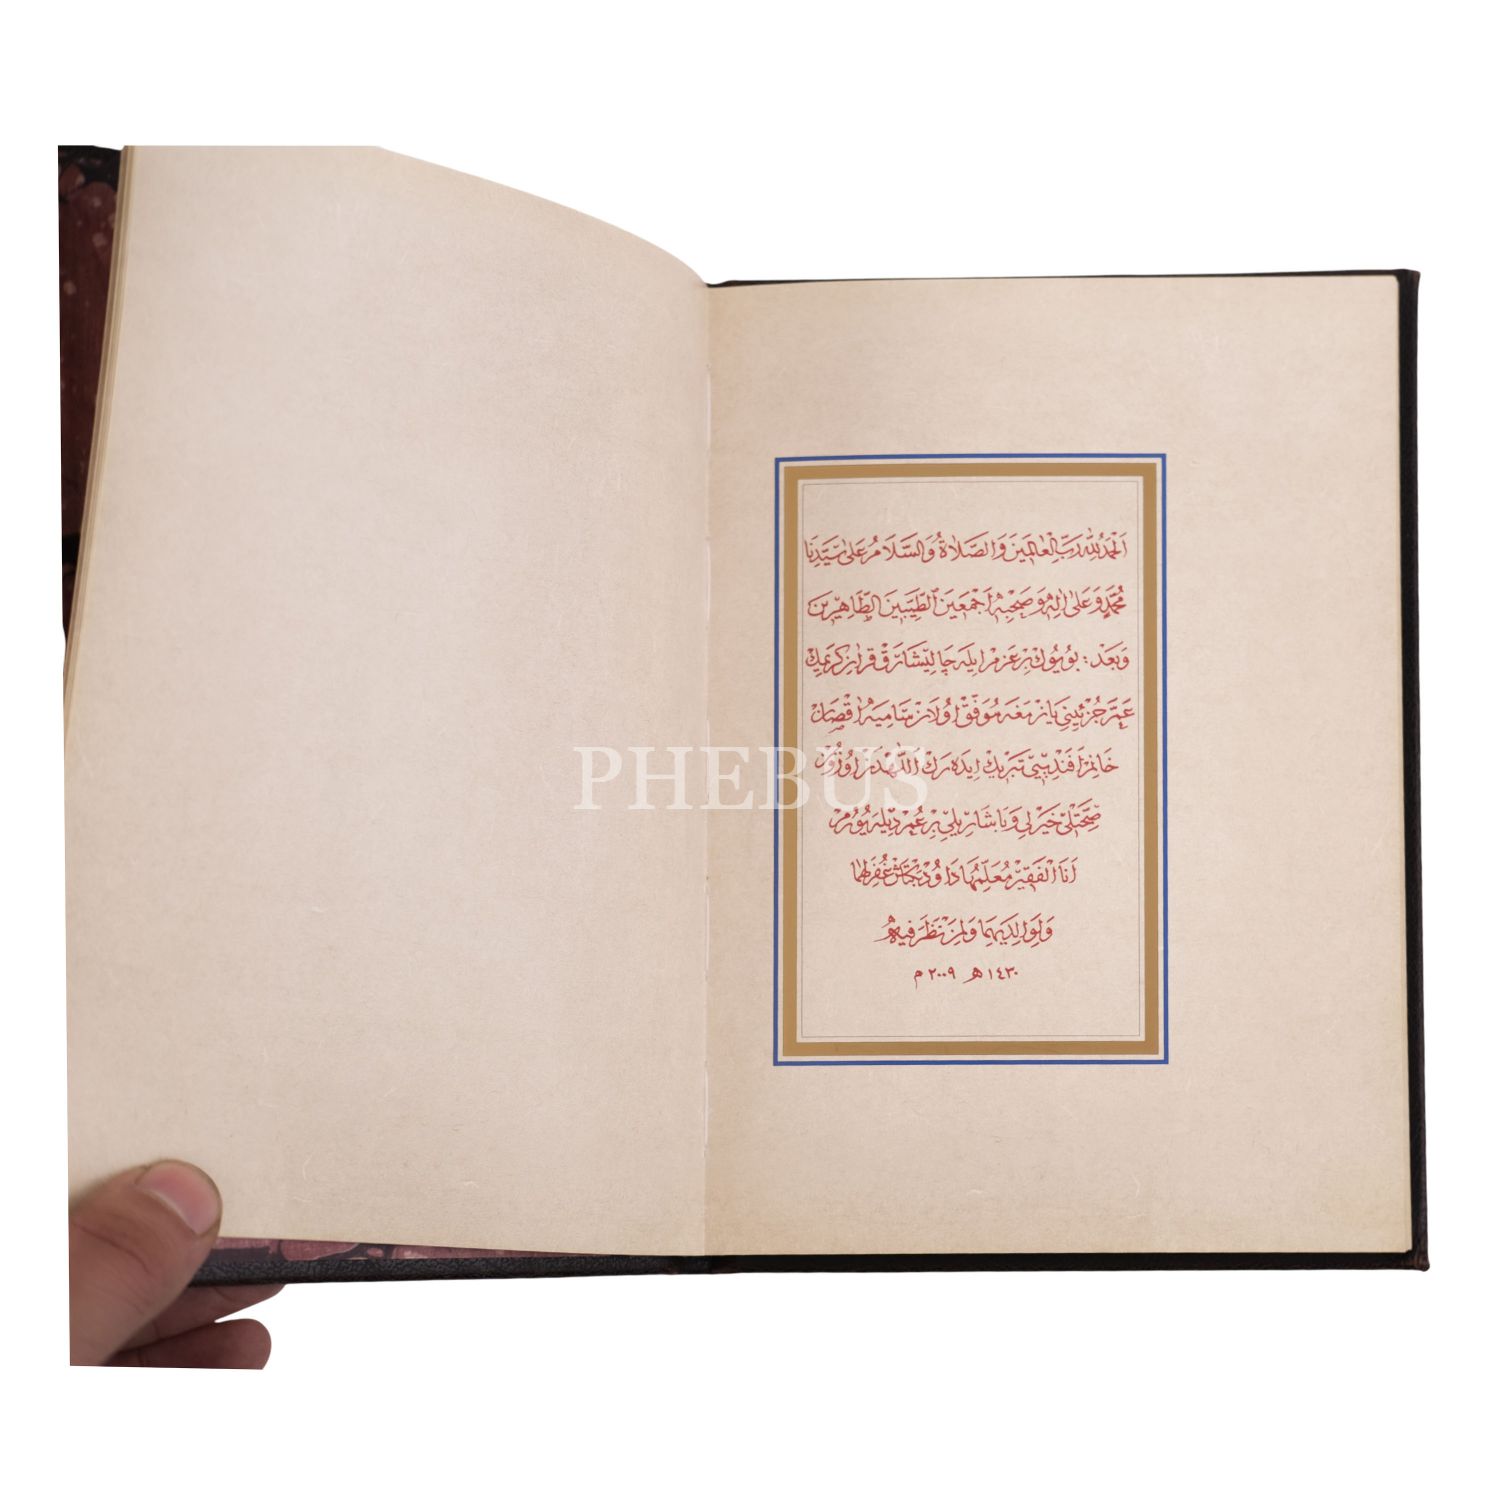 اَلْحَمْدُ لِلّٰهِ رَبِّ الْعَالَمِينَ وَالصَّلَاةُ وَالسَّلَامُ عَلٰى سَيِّدِنَا
مُحَمَّدٍ وَعَلٰى اٰلِهِ وَصَحْبِهِ اَجْمَعِينَ الطَّيِّبِينَ الطَّاهِرِينَ
وَبَعْدُ : بُويُوكْ بِرْ عَزْمْ اِيلَه چَالِيشَارَقْ قُرْاٰنِ كَرِيمِكْ
عَمَّ جُزْئِينِي يَازْمَغَه مُوَفَّقْ اُولَانْ سَامِيَه اٰقْصَانْ
خَانِمْ اَفَنْدِييِي تَبْرِيكْ اِيدَه رَكْ اَللّٰهْدَنْ اُوزُونْ
PHEBUS
صِحَّتْلِي خَيْرْلِي وَبَاشَارِيلِي بِرْ عُمْرْ دِيلَه يُورُمْ
اَنَا الْفَقِيرْ مُعَلِّمُهَا دَاوُدْ بَكْتَاشْ غُفِرَ لَهُمَا
وَلِوَالِدَيْهِمَا وَلِمَنْ نَظَرَ فِيهِ
١٤٣٠ هـ ٢٠٠٩ م